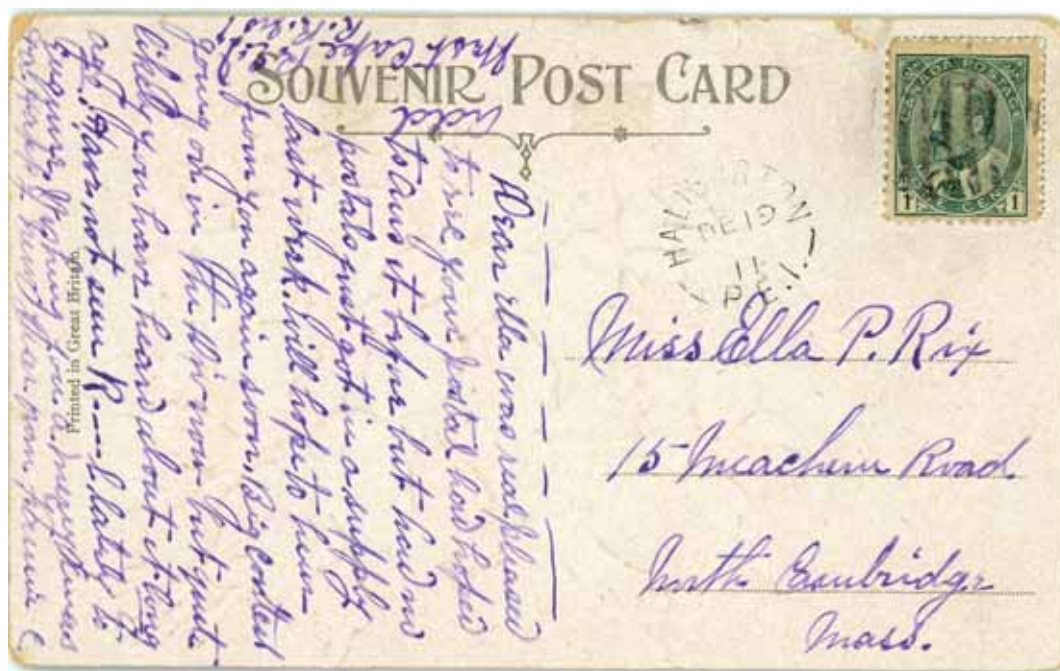 SOUVENIR POST CARD
CANADA POSTAGE
1 ONE CENT 1
HALIBURTON
DE 19
11
P.E.I.
Miss Ella P. Rix
15 Meacham Road
North Cambridge
Mass.
Printed in Great Britain
West Cape P.E.I.
Dear Ella was real pleased
to see your postal had hoped
to ans it before but had no
postals just got in a supply
last week. will hope to hear
from you again soon. Big contest
going on in the Div now but quite
likely you have heard about it long
ago. Have not seen R---- lately to
enquire. Wishing you a merry Xmas